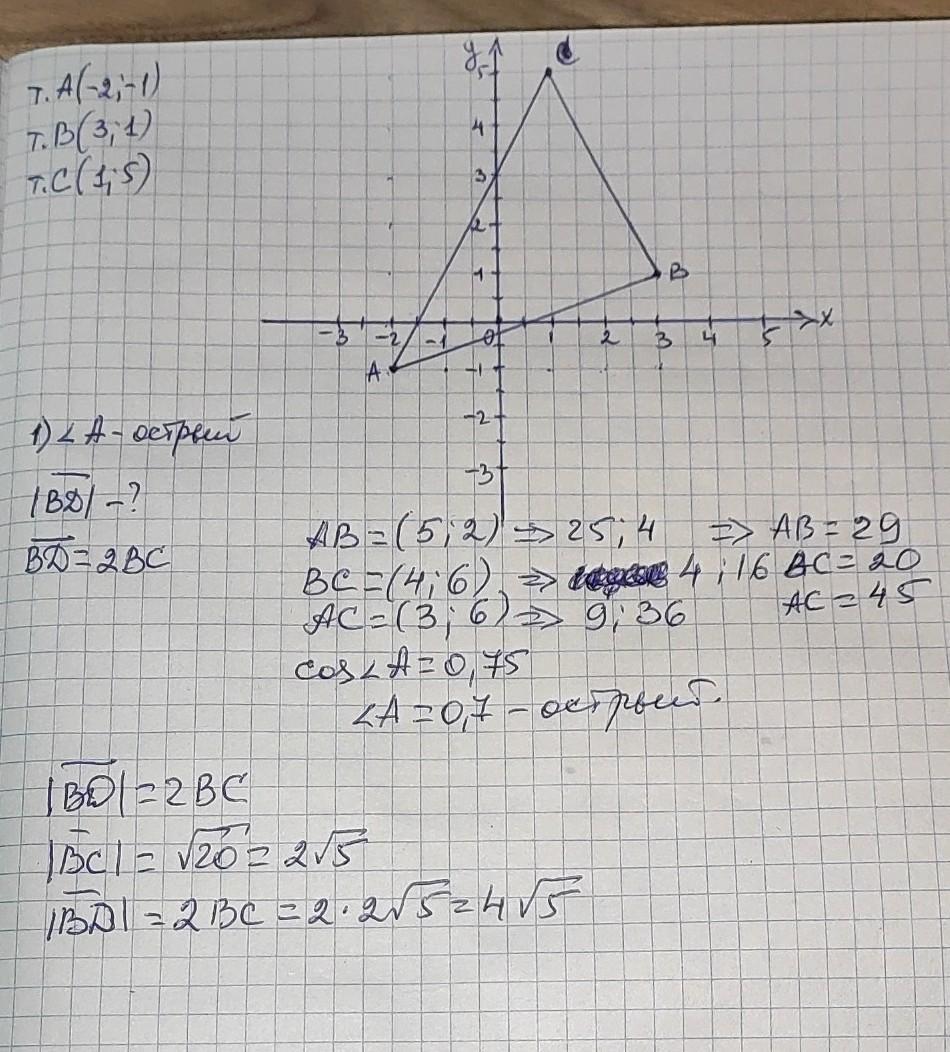 т. A(-2;-1)
т. B(3;1)
т. C(1;5)
y
5
C
4
3
2
1
B
-3 -2 -1 0 1 2 3 4 5 x
A
-1
-2
-3
1) ∠A - острый
|BD| - ?
BD = 2BC
AB = (5;2) ⇒ 25;4 ⇒ AB = 29
BC = (4;6) ⇒ 4;16 BC = 20
AC = (3;6) ⇒ 9;36 AC = 45
cos∠A = 0,75
∠A = 0,7 - острый.
|BD| = 2BC
|BC| = √20 = 2√5
|BD| = 2BC = 2·2√5 = 4√5